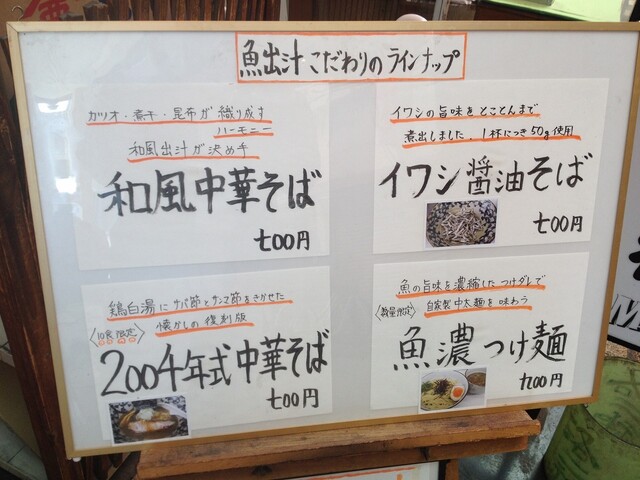 魚出汁 こだわりのラインナップ
カツオ・煮干・昆布が織り成す
ハーモニー
和風出汁が決め手
和風中華そば
700円
イワシの旨味をとことんまで
煮出しました。1杯につき50g使用
イワシ醤油そば
700円
鶏白湯にサバ節とサンマ節をきかせた
懐かしの復刻版
〈10食限定〉
2004年式中華そば
700円
魚の旨味を濃縮したつけダレで
〈数量限定〉
自家製中太麺を味わう
魚濃つけ麺